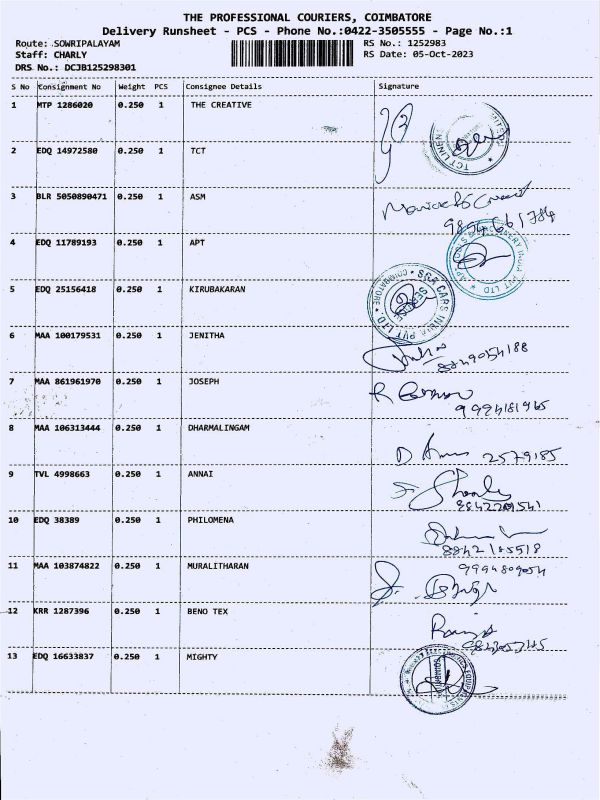 THE PROFESSIONAL COURIERS, COIMBATORE
Delivery Runsheet - PCS - Phone No.:0422-3505555 - Page No.:1
Route: SOWRIPALAYAM RS No.: 1252983
Staff: CHARLY RS Date: 05-Oct-2023
DRS No.: DCJB125298301
S No Consignment No Weight PCS Consignee Details Signature
1 MTP 1286020 0.250 1 THE CREATIVE
TCT LINENS
2 EDQ 14972580 0.250 1 TCT
3 BLR 5050890471 0.250 1 ASM
4 EDQ 11789193 0.250 1 APT
5 EDQ 25156418 0.250 1 KIRUBAKARAN
SGA CARS INDIA PVT LTD. * COIMBATORE *
6 MAA 100179531 0.250 1 JENITHA
7 MAA 861961970 0.250 1 JOSEPH
8 MAA 106313444 0.250 1 DHARMALINGAM
2579185
9 TVL 4998663 0.250 1 ANNAI
10 EDQ 38389 0.250 1 PHILOMENA
8842185518
11 MAA 103874822 0.250 1 MURALITHARAN
12 KRR 1287396 0.250 1 BENO TEX
13 EDQ 16633837 0.250 1 MIGHTY